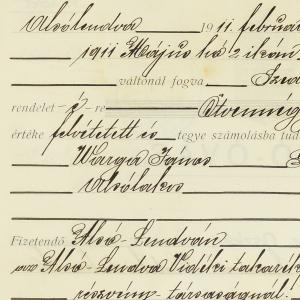 Alsólendva 1911. február
1911 Május hó 2 ikán
váltónál fogva
rendelet-é-re Ötvennég
értéke felvétetett és tegye számolásba tud
Varga János
Alsólakos
Fizetendő Alsó-Lendván
az Alsó-Lendva Vidéki takarék
részvény-társaságnál